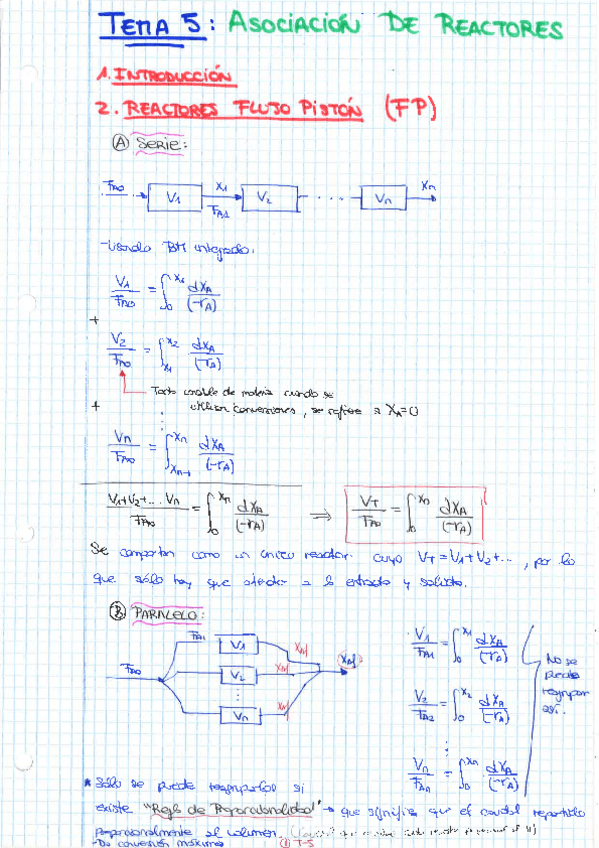 TEMA 5: ASOCIACIÓN DE REACTORES
1. INTRODUCCIÓN
2. REACTORES FLUJO PISTÓN (FP)
Ⓐ SERIE:
F_A0 V_1 X_1 F_A1 V_2 ... V_n X_n
-Usando BM integrado:
V_1/F_A0 = ∫_0^X_1 dX_A/(-r_A)
+
V_2/F_A0 = ∫_X_1^X_2 dX_A/(-r_A)
Todo caudal de materia cuando se
+ utilizan conversiones, se refiere a X_A=0
⋮
V_n/F_A0 = ∫_X_n-1^X_n dX_A/(-r_A)
V_1+V_2+...V_n/F_A0 = ∫_0^X_n dX_A/(-r_A) ⇒ V_T/F_A0 = ∫_0^X_n dX_A/(-r_A)
Se comportan como un único reactor cuyo V_T=V_1+V_2+..., por lo
que sólo hay que atender a la entrada y salida.
Ⓑ PARALELO:
F_A0 F_A1 V_1 X_Af
V_2 X_Af X_Af
⋮
V_n X_Af
V_1/F_A1 = ∫_0^X_1 dX_A/(-r_A)
V_2/F_A2 = ∫_0^X_2 dX_A/(-r_A)
V_n/F_An = ∫_0^X_n dX_A/(-r_A)
No se
puede
reagrupar
así.
* Sólo se puede reagruparlos si
existe "Regla de Proporcionalidad" → que significa que el caudal repartido
proporcionalmente al volumen.
-Da conversión máxima
① T-5